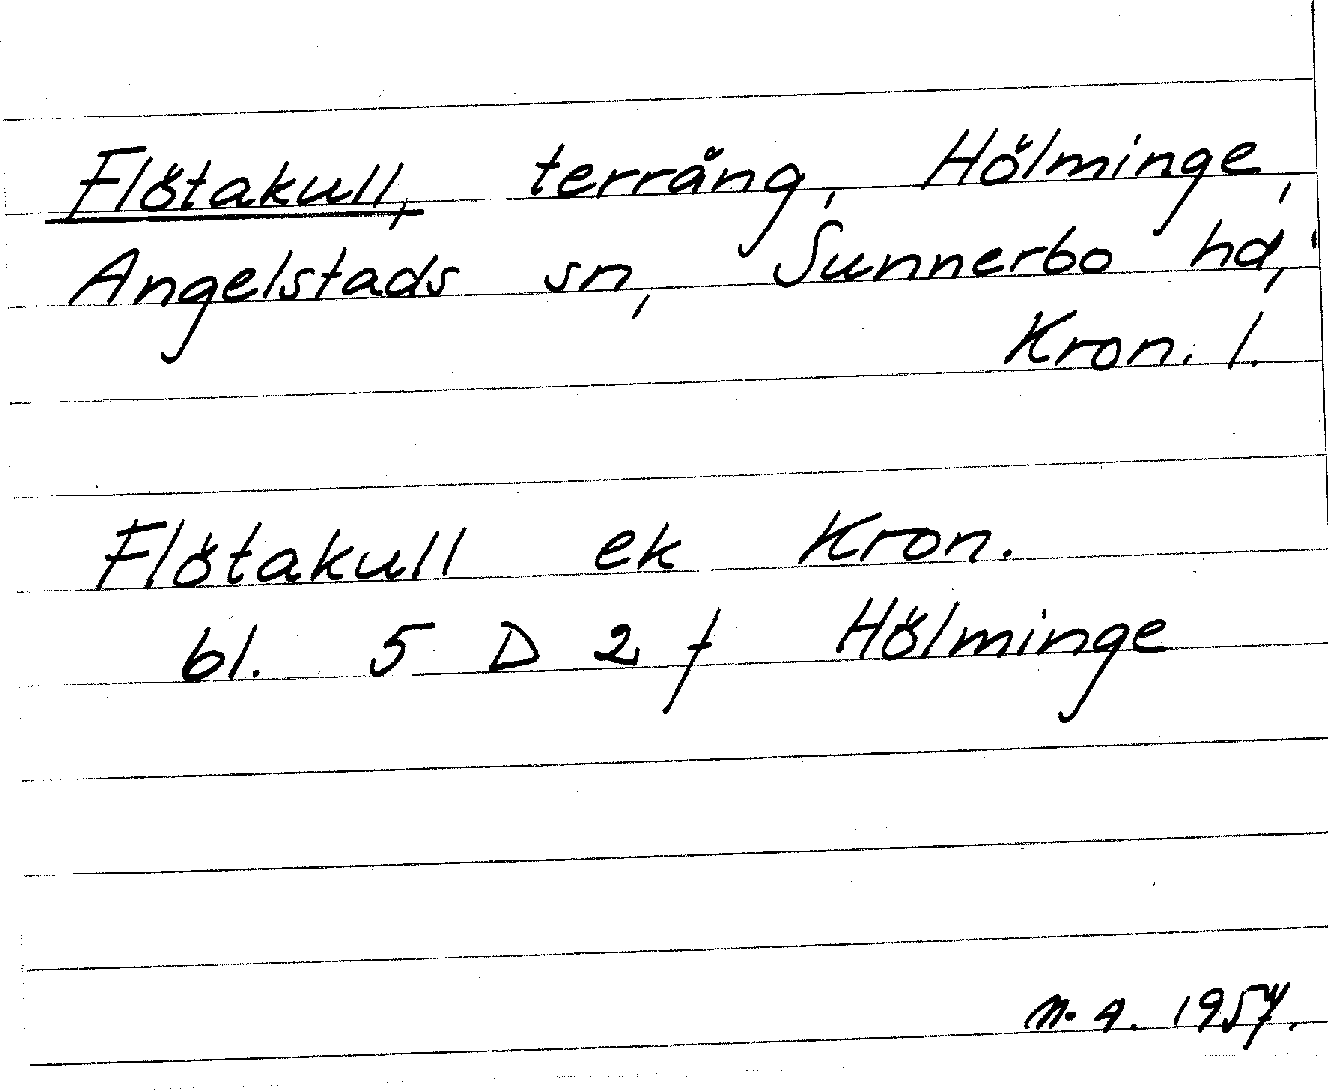 Flötakull, terräng, Hölminge,
Angelstads sn, Sunnerbo hd,
Kron. l.
Flötakull ek Kron.
bl. 5 D 2 f Hölminge
n. a. 1957.